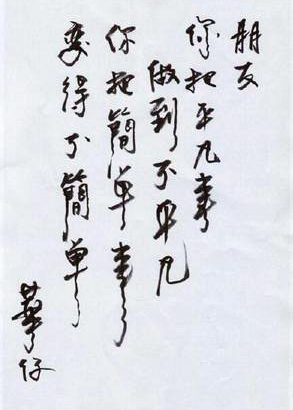 朋友
你把平凡事
做到不平凡
你把簡單事
變得不簡單
華仔